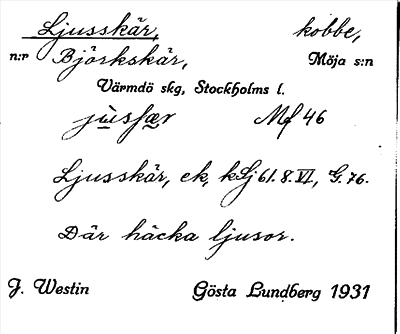 Ljusskär, kobbe,
n:r Björkskär, Möja s:n
Värmdö skg, Stockholms l.
jùsfær Mf 46
Ljusskär, ek, kSj 61. 8. VI, G. 76.
Där häcka ljusor.
J. Westin Gösta Lundberg 1931